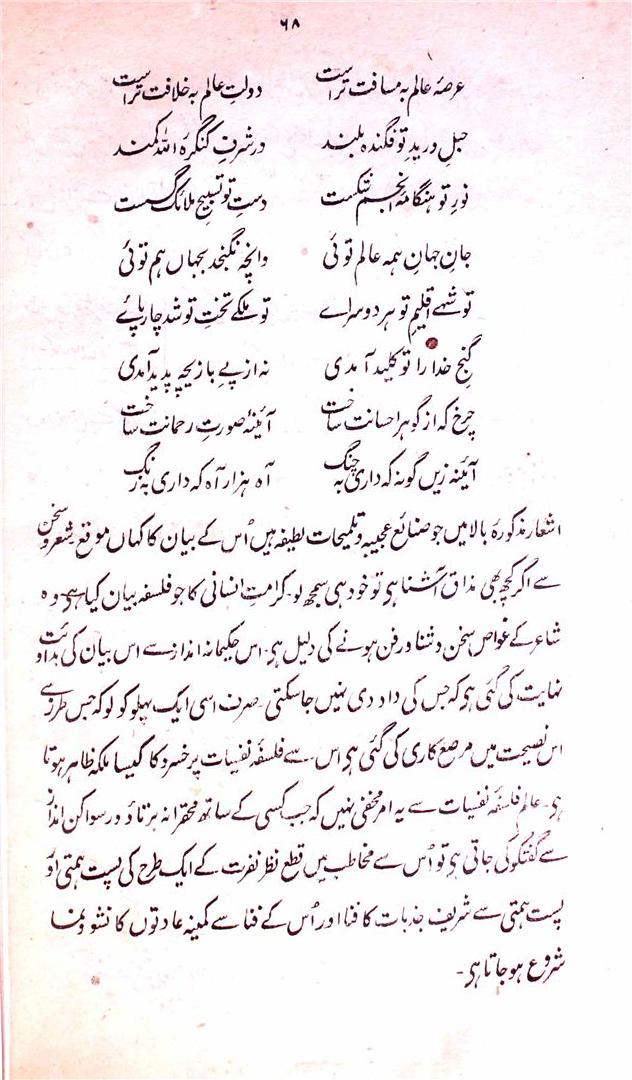 ۶۸
عرصۂ عالم بہ مسافت تراست دولتِ عالم بہ خلافت تراست
حبلِ وریدِ تو فگندہ بلند در شرفِ کنگرۂ اللہ کمند
نورِ تو ہنگامۂ انجم شکست دستِ تو تسبیحِ ملائک گسست
جانِ جہانِ ہمہ عالم توئی وانچہ نگنجد بجہاں ہم توئی
تو شہے اقلیمِ تو ہر دو سراے تو ملکے تختِ تو شد چار پاے
گنجِ خدا را تو کلید آمدی نہ از پےِ بازیچہ پدید آمدی
چرخ کہ از گوہرِ احسانت ساخت آئینۂ صورتِ رحمانت ساخت
آئینہ زیں گونہ کہ داری بہ چنگ آہ ہزار آہ کہ داری بہ زنگ
اشعار مذکورۂ بالا میں جو صنائع عجیبہ و تلمیحات لطیفہ ہیں اُس کے بیان کا کہاں موقع شعر و سخن
سے اگر کچھ بھی مذاق آشنا ہی تو خود ہی سمجھ لو۔ کرامتِ انسانی کا جو فلسفہ بیان کیا ہی وہ
شاعر کے غواص سخن و شناور فن ہونے کی دلیل ہی۔ اس حکیمانہ انداز سے اس بیان کی بدائت و
نہایت کی گئی ہی کہ جس کی داد دی نہیں جاسکتی۔ صرف اسی ایک پہلو کو لو کہ جس طرز سے
اس نصیحت میں مرصع کاری کی گئی ہی اس سے فلسفۂ نفسیات پر خسرو کا کیسا ملکہ ظاہر ہوتا
ہی۔ عالم فلسفۂ نفسیات سے یہ امر مخفی نہیں کہ جب کسی کے ساتھ محقرانہ برتاؤ و رسوا کن انداز
سے گفتگو کی جاتی ہی تو اُس سے مخاطب میں قطع نظر نفرت کے ایک طرح کی پست ہمتی اَور
پست ہمتی سے شریف جذبات کا فنا اور اُس کے فنا سے کمینہ عادتوں کا نشو و نما
شروع ہوجاتا ہی۔